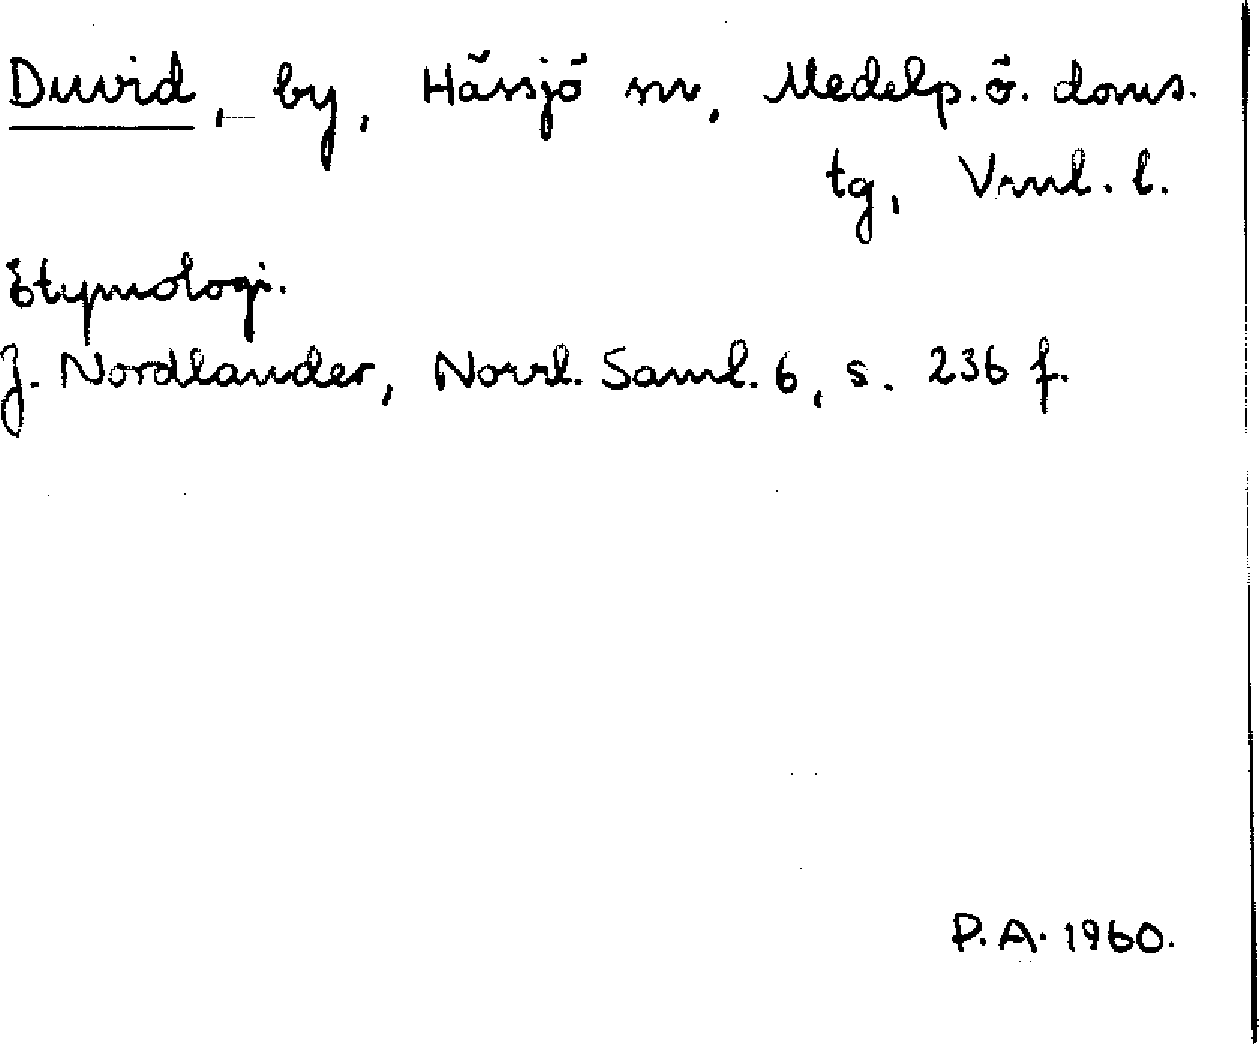 Duvid, by, Hässjö sn, Medelp. ö. doms.
tg, Vrnl. l.
Etymologi.
J. Nordlander, Norrl. Saml. 6, s. 236 f.
P.A. 1960.